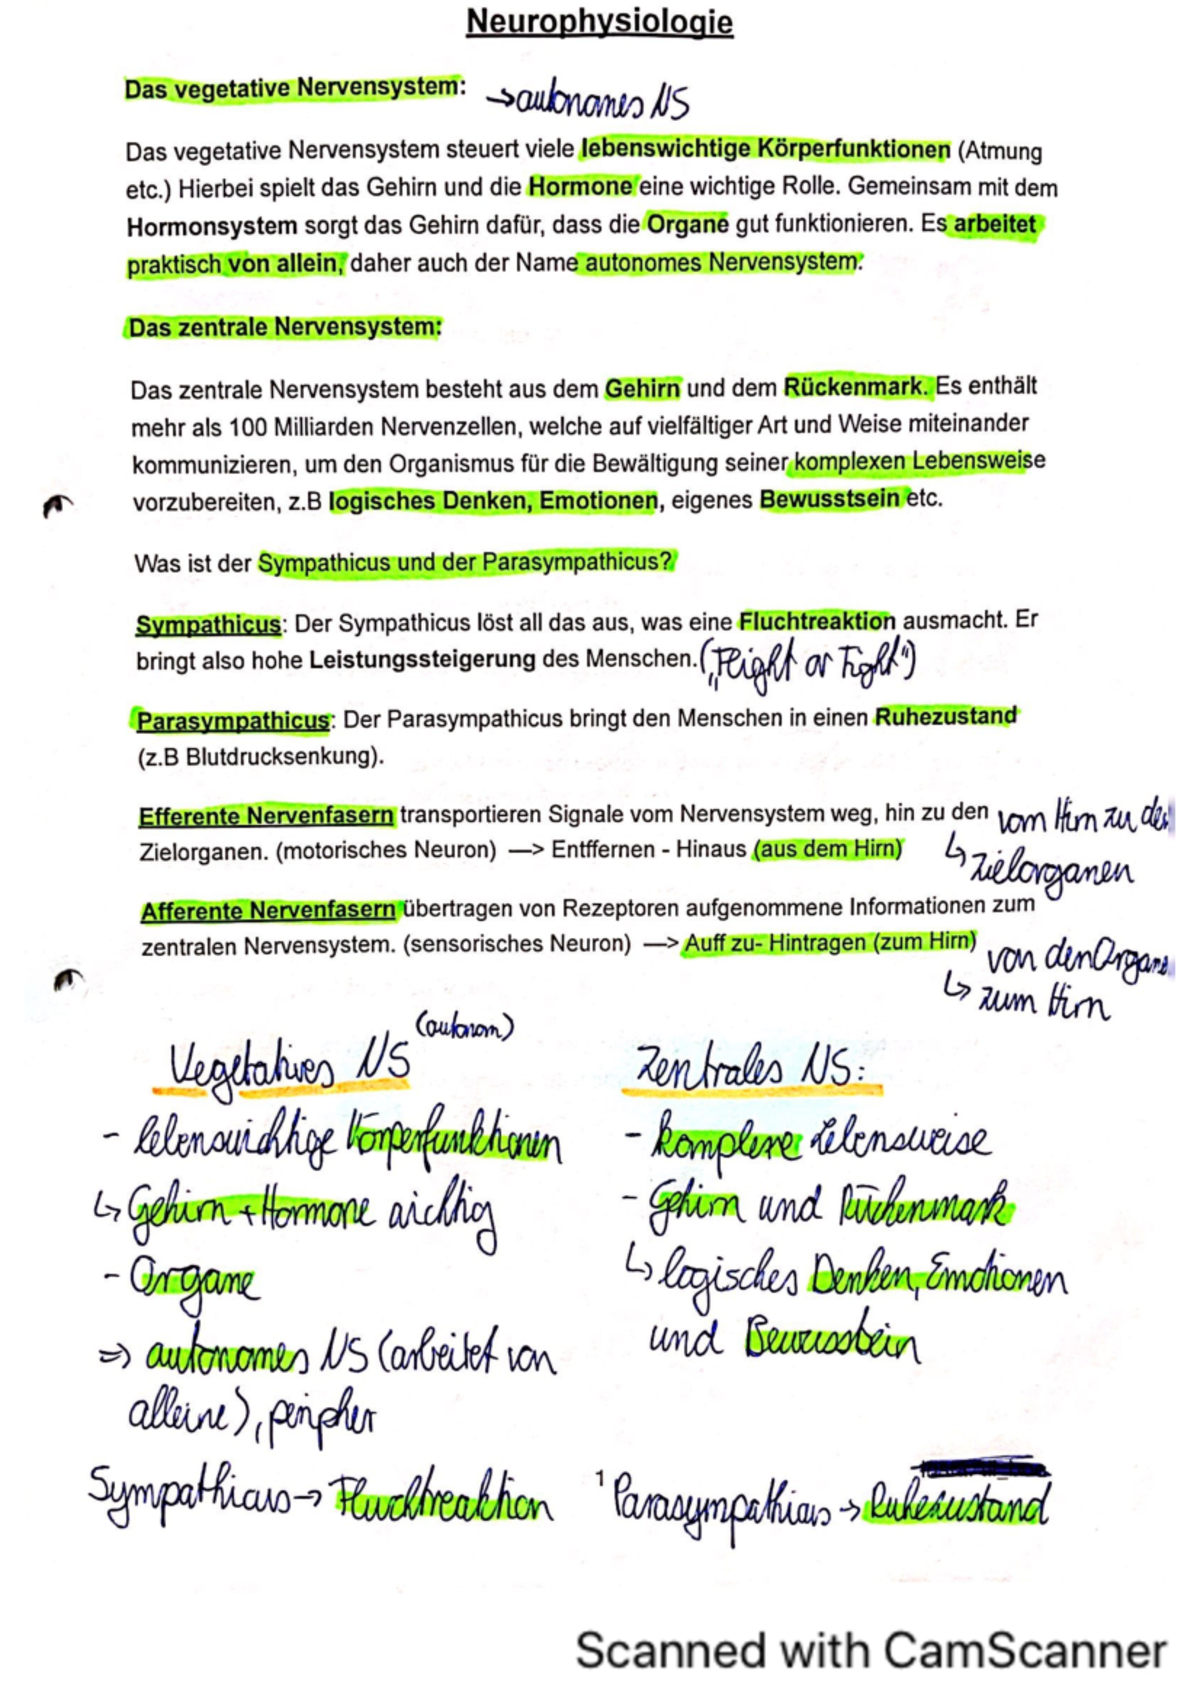 Neurophysiologie
Das vegetative Nervensystem: →autonomes NS
Das vegetative Nervensystem steuert viele lebenswichtige Körperfunktionen (Atmung
etc.) Hierbei spielt das Gehirn und die Hormone eine wichtige Rolle. Gemeinsam mit dem
Hormonsystem sorgt das Gehirn dafür, dass die Organe gut funktionieren. Es arbeitet
praktisch von allein, daher auch der Name autonomes Nervensystem.
Das zentrale Nervensystem:
Das zentrale Nervensystem besteht aus dem Gehirn und dem Rückenmark. Es enthält
mehr als 100 Milliarden Nervenzellen, welche auf vielfältiger Art und Weise miteinander
kommunizieren, um den Organismus für die Bewältigung seiner komplexen Lebensweise
vorzubereiten, z.B logisches Denken, Emotionen, eigenes Bewusstsein etc.
Was ist der Sympathicus und der Parasympathicus?
Sympathicus: Der Sympathicus löst all das aus, was eine Fluchtreaktion ausmacht. Er
bringt also hohe Leistungssteigerung des Menschen. („Flight or Fight")
Parasympathicus: Der Parasympathicus bringt den Menschen in einen Ruhezustand
(z.B Blutdrucksenkung).
Efferente Nervenfasern transportieren Signale vom Nervensystem weg, hin zu den vom Hirn zu den
Zielorganen. (motorisches Neuron) —> Entffernen - Hinaus (aus dem Hirn) ↳ Zielorganen
Afferente Nervenfasern übertragen von Rezeptoren aufgenommene Informationen zum
zentralen Nervensystem. (sensorisches Neuron) —> Auff zu- Hintragen (zum Hirn) von den Organen
↳ zum Hirn
Vegetatives NS (autonom)
- lebenswichtige Körperfunktionen
↳ Gehirn + Hormone wichtig
- Organe
⇒ autonomes NS (arbeitet von
alleine), peripher
Zentrales NS:
- komplexe Lebensweise
- Gehirn und Rückenmark
↳ logisches Denken, Emotionen
und Bewusstsein
Sympathicus → Fluchtreaktion
1 Parasympathicus → Ruhezustand
Scanned with CamScanner